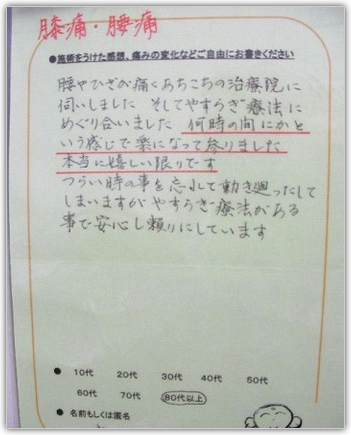 膝痛・腰痛
●施術をうけた感想、痛みの変化などご自由にお書きください
腰やひざが痛くあちこちの治療院に
伺いしました そしてやすらぎ療法に
めぐり合いました 何時の間にかと
いう感じで楽になって参りました
本当に嬉しい限りです
つらい時の事を忘れて動き廻ったして
しまいますが やすらぎ療法がある
事で安心し頼りにしています
● 10代 20代 30代 40代 50代
60代 70代 80代以上
● 名前もしくは匿名